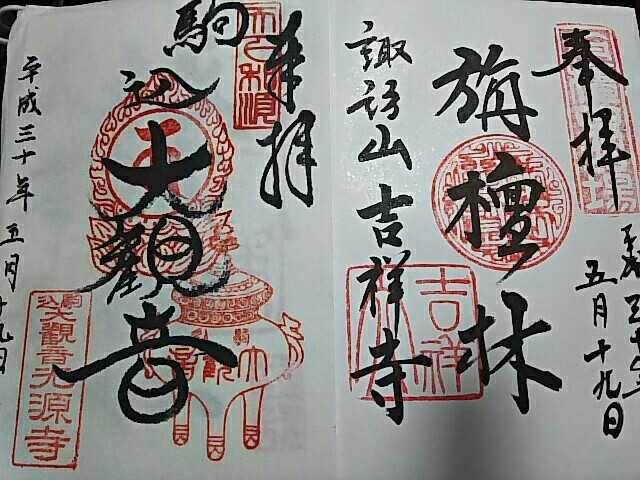 奉拝
旃檀林
諏訪山吉祥寺
平成三十年
五月十九日
吉祥
奉拝
駒込大觀音
平成三十年五月十九日
駒込
大觀音光源寺
大觀音